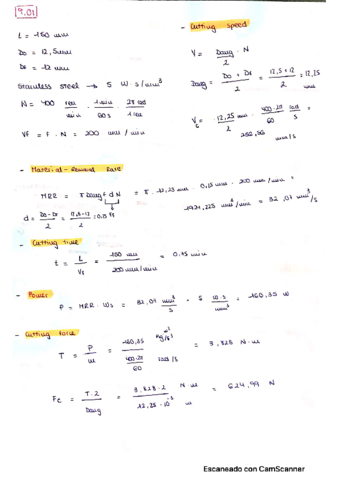 9.01
L = 150 mm
Do = 12,5 mm
Df = 12 mm
Stainless steel → 5 W·s/mm³
N = 400 rev/min · 1 min/60 s · 2π rad/1 rev
Vf = f · N = 200 mm/min
- Cutting speed
V = Davg/2 · N
Davg = (Do + Df)/2 = (12,5 + 12)/2 = 12,25 mm
V = 12,25 mm/2 · 400·2π/60 rad/s =
256,56 mm/s
- Material-Removal Rate
MRR = π Davg f d N = π · 12,25 mm · 0,25 mm · 200 mm/min =
d = (Do - Df)/2 = (12,5 - 12)/2 = 0,25
1924,225 mm³/min = 32,07 mm³/s
- Cutting time
t = L/Vf = 150 mm / 200 mm/min = 0.75 min
- Power
P = MRR · Ws = 32,07 mm³/s · 5 W·s/mm³ = 160,35 W
- Cutting force
T = P/ω = 160,35 / (400·2π/60 rad/s) = 3,828 N·m
Fc = T·2/Davg = 3,828·2 / 12,25·10⁻³ N·m/m = 624,99 N
Escaneado con CamScanner